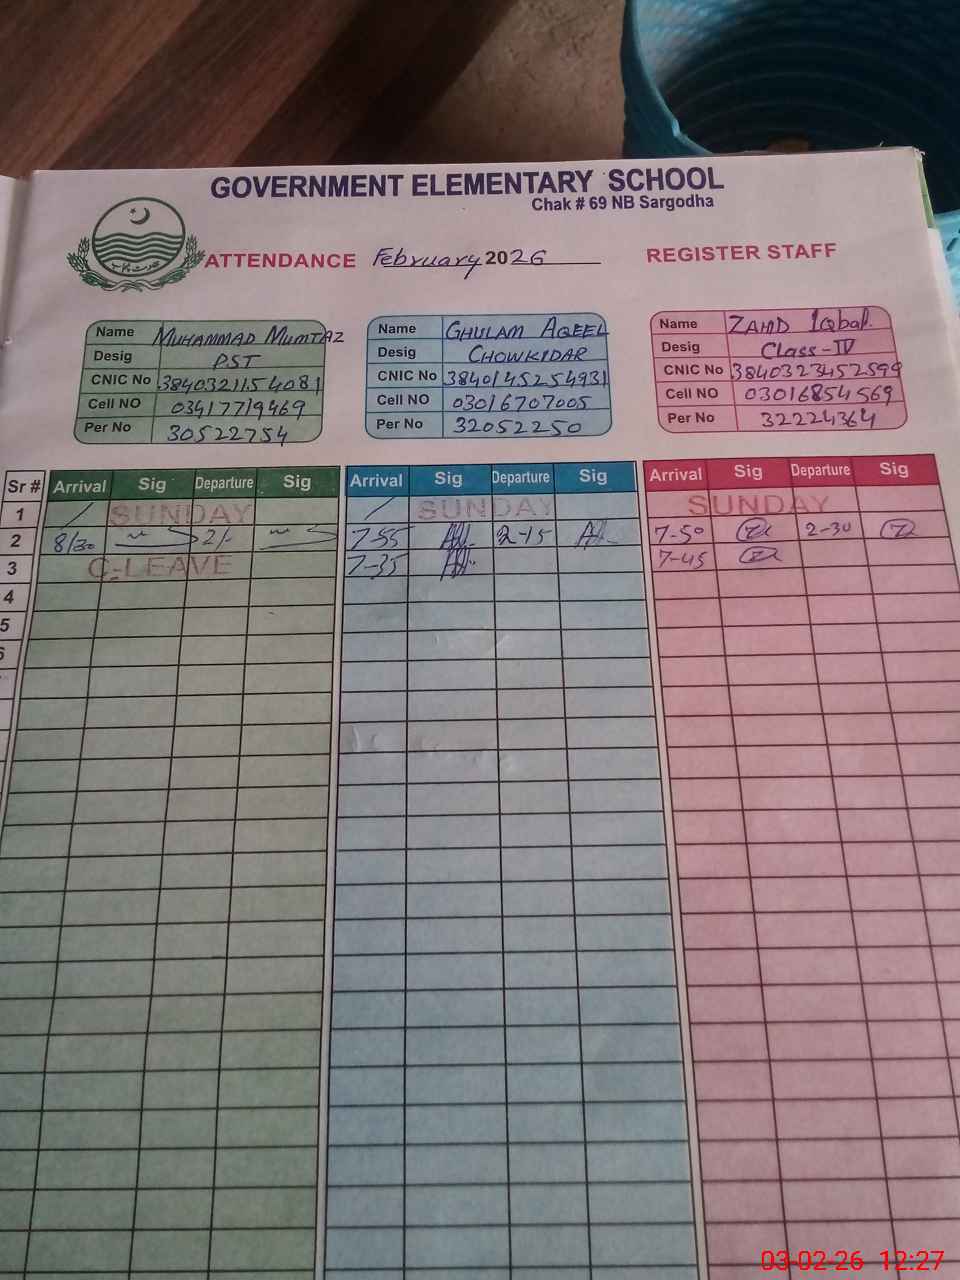 GOVERNMENT ELEMENTARY SCHOOL
Chak # 69 NB Sargodha
ATTENDANCE February 2026 REGISTER STAFF
Name MUHAMMAD MUMTAZ
Desig PST
CNIC No 3840321154081
Cell NO 03417719469
Per No 30522754
Name GHULAM AQEEL
Desig CHOWKIDAR
CNIC No 3840145254931
Cell NO 03016707005
Per No 32052250
Name ZAHID Iqbal.
Desig Class-IV
CNIC No 3840323457599
Cell NO 03016854569
Per No 32224364
Sr # Arrival Sig Departure Sig Arrival Sig Departure Sig Arrival Sig Departure Sig
1 SUNDAY SUNDAY SUNDAY
2 8/30 2/- 7-55 2-15 7-50 2-30
3 C-LEAVE 7-35 7-45
4
5
6
03-02-26 12:27